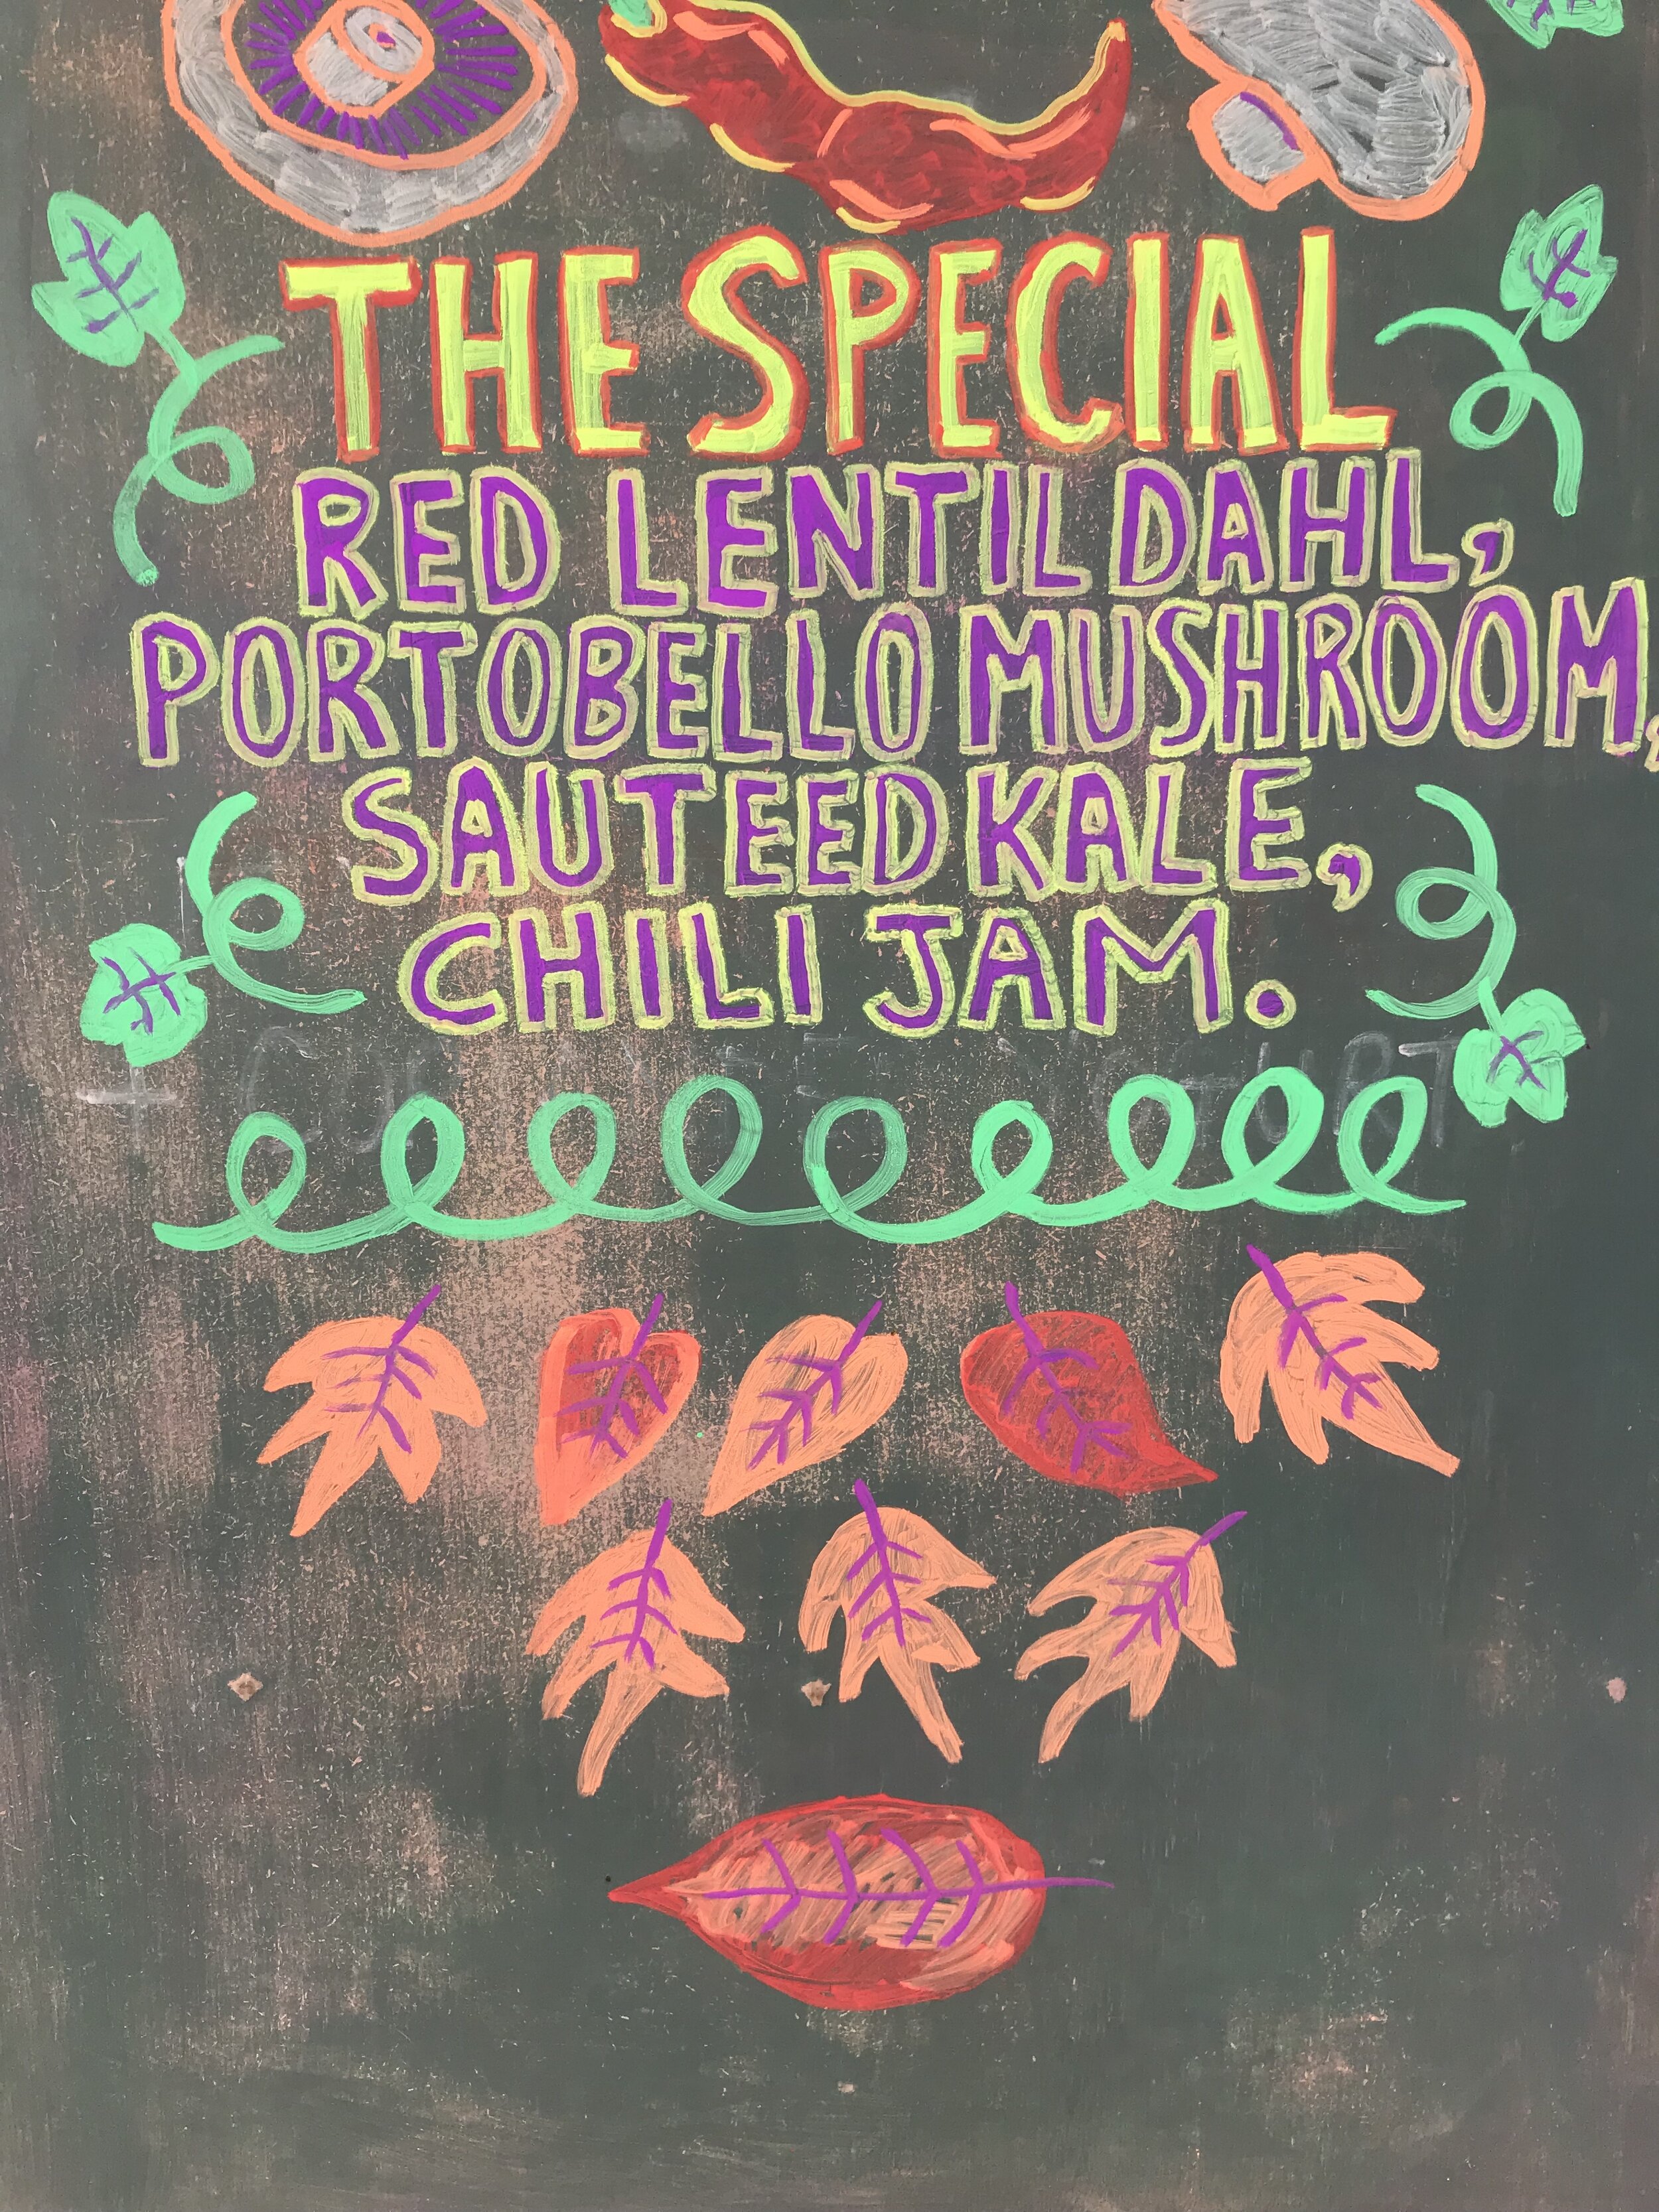 THE SPECIAL
RED LENTIL DAHL,
PORTOBELLO MUSHROOM,
SAUTEED KALE,
CHILI JAM.
YOGURT